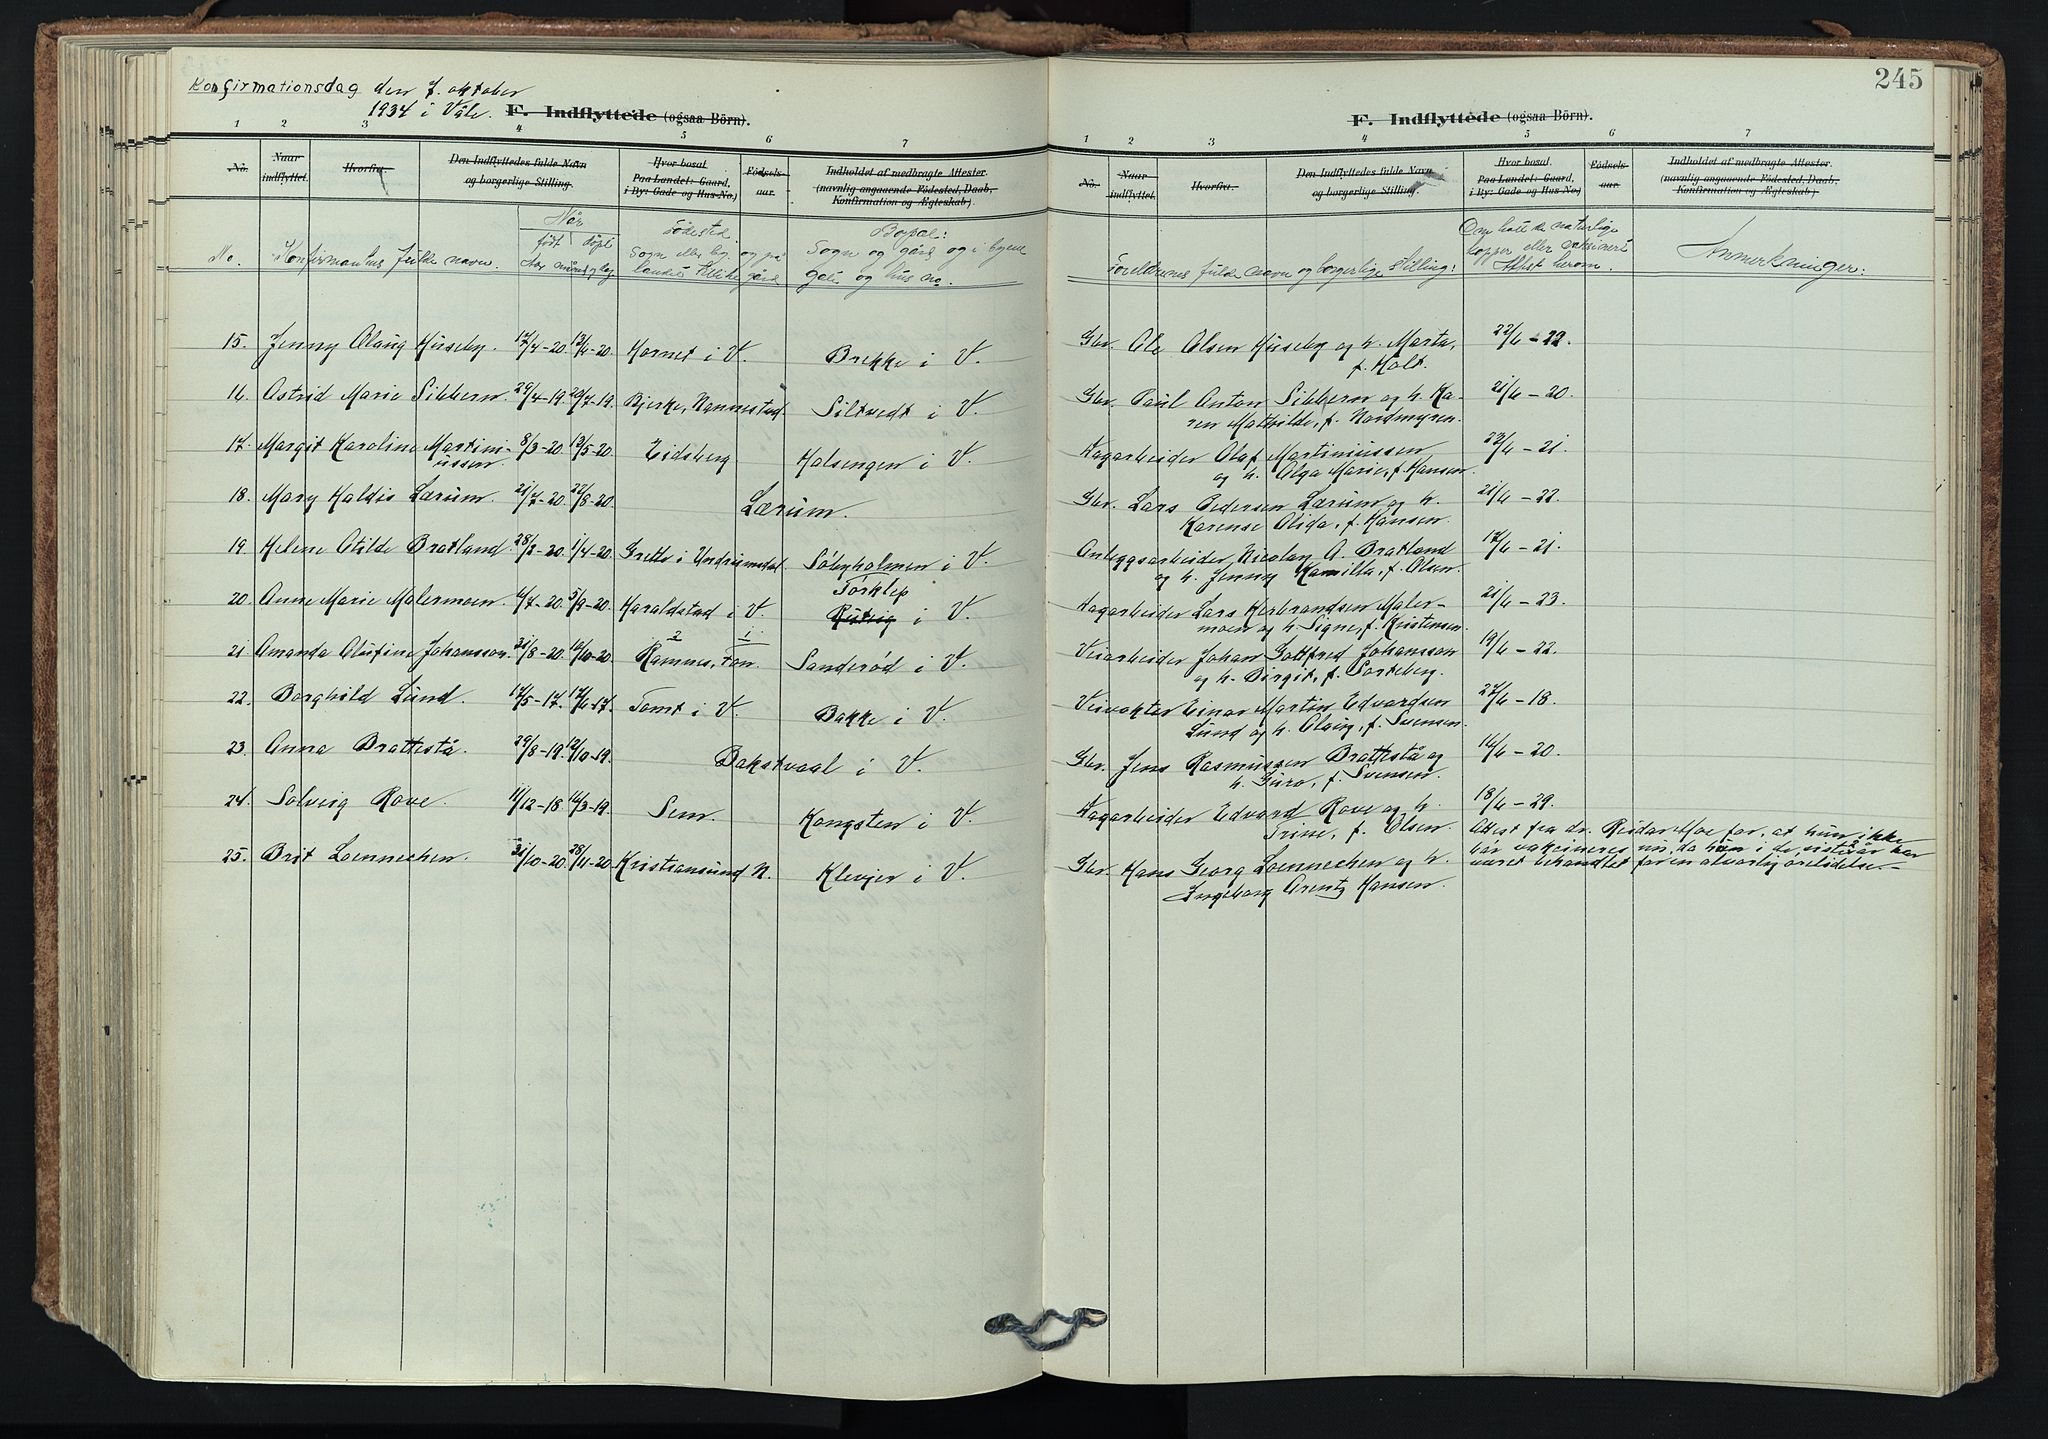 Konfirmationsdag den 7. oktober
1934 i Våle.
F. Indflyttede (ogsaa Börn).
1 2 3 4 5 6 7
No. Naar indflyttet. Hvorfra. Den Indflyttedes fulde Navn og borgerlige Stilling. Hvor bosat Paa Landet: Gaard, i By: Gade og Hus-No.) Födsels-aar. Indholdet af medbragte Attester. (navnlig angaaende Födested, Daab, Konfirmation og Ægteskab).
No. Konfirmantens fulde navn. Når født døpt Fødested. Sogn eller by, og på landet tillike gård Bopæl: Sogn og gård og i byene gate og hus no.
15. Jenny Olaug Huseby. 17/4-20. 13/6-20. Hornet i V. Brekke i V.
16. Astrid Marie Sibbern 29/4-19. 20/7-19. Bjerke, Nannestad Siltvedt i V.
17. Margit Karoline Martini-
ussen. 8/3-20. 13/5-20 Eidsberg Holsengen i V.
18. Mary Haldis Lærum. 21/7-20. 22/8-20. Lærum.
19. Helene Otilde Bratland. 28/2-20. 1/4-20. Grette i Undrumsdal. Solbyholmen i V.
Torklep
20. Anne Marie Malermoen. 4/7-20. 5/9-20. Haraldstad i V. i V.
2 1
21 Amanda Olufine Johansson. 31/8-20. 10/10-20. Ramnes, Fon. Sanderød i V.
22. Borghild Lund. 17/5-17. 17/6-17. Tomt i V. Bakke i V.
23. Anna Brattestå. 29/8-19. 12/10-19. Bakstvaal i V.
24. Solveig Rove. 11/12-18. 16/3-19. Sem. Kongsten i V.
25. Brit Loennechen. 31/10-20 28/11-20 Kristiansund N. Klevjer i V.
245
F. Indflyttede (ogsaa Börn).
1 2 3 4 5 6 7
No. Naar indflyttet. Hvorfra. Den Indflyttedes fulde Navn og borgerlige Stilling. Hvor bosat Paa Landet: Gaard, i By: Gade og Hus-No.) Födsels-aar. Indholdet af medbragte Attester. (navnlig angaaende Födested, Daab, Konfirmation og Ægteskab)
Foreldrenes fulde navn og borgerlige stilling: Om hatt de naturlige kopper eller vaksinert Attest herom. Anmerkninger:
Gbr. Ole Olsen Huseby og h. Marta, 22/6-22.
f. Holt.
Gbr. Paul Anton Sibbern og h. Ka- 21/6-20.
ren Mathilde, f. Nordmyren.
Hagarbeider Olaf Martiniussen 22/6-21.
og h. Olga Marie, f. Hansen.
Gbr. Lars Pedersen Lærum og h. 21/6-22.
Karense Olida, f. Hansen.
Anleggsarbeider Nicolay A. Bratland 17/6-21.
og h. Jenny Kamilla, f. Olsen.
Hagarbeider Lars Herbrandsen Maler- 21/6-23.
moen og h. Signe, f. Kristensen.
Veiarbeider Johan Gottfred Johansson 19/6-22.
og h. Birgit, f. Sorteberg.
Veivokter Einar Martin Edvardsen 27/6-18.
Lund og h. Olaug, f. Svensen.
Gbr. Jens Rasmussen Brattestå og 16/6-20.
h. Guro, f. Svensen.
Hagarbeider Edvard Rove og h. 18/6-29.
Trine, f. Olsen.
Attest fra dr. Reidar Moe for, at hun ikke
bør vaksineres nu, da hun i de siste 2 år har
været behandlet for en alvorlig ørelidelse.-
Gbr. Hans Georg Loennechen og h.
Ingeborg Arentz Hansen.